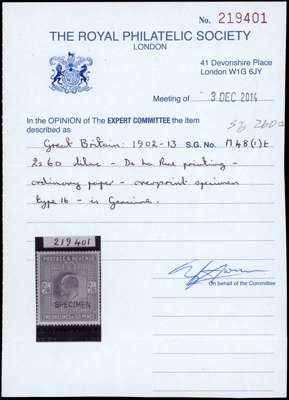 No. 219401
THE ROYAL PHILATELIC SOCIETY
LONDON
41 Devonshire Place
London W1G 6JY
Meeting of - 3 DEC 2014
In the OPINION of The EXPERT COMMITTEE the item
described as
SG 260
Great Britain: 1902-13 S.G. No. M48(1)t
2s6d lilac - De La Rue printing -
ordinary paper - overprint specimen
type 16 - is Genuine.
On behalf of the Committee
219401
POSTAGE & REVENUE
SPECIMEN
TWO SHILLINGS & SIX PENCE